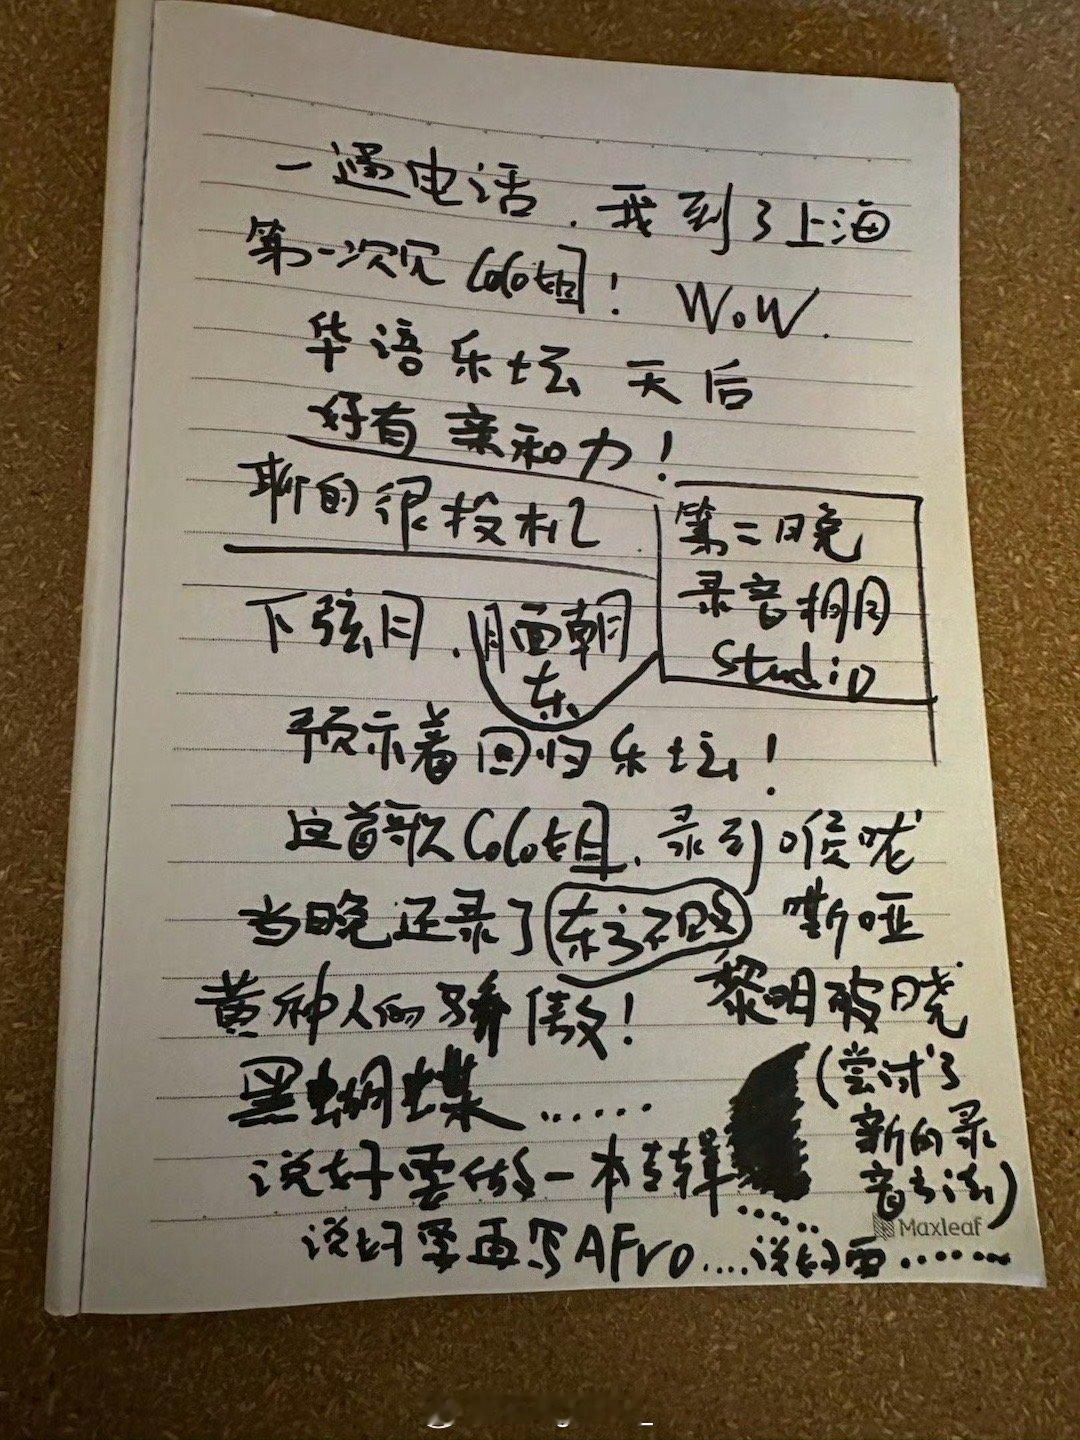 一通电话.我到了上海
第一次见CoCo姐! WoW.
华语乐坛 天后
好有亲和力!
聊的很投机
第二晚
录音棚
Studio
下弦月.月面朝
东
预示着回归乐坛!
这首歌CoCo姐.录到喉咙
嘶哑
当晚还录了东方不败
黄种人的骄傲!
黎明破晓
(尝试了
新的录
音方法)
黑蝴蝶......
说好要做一本专辑......
说好要再写AFro....说好要......
Maxleaf